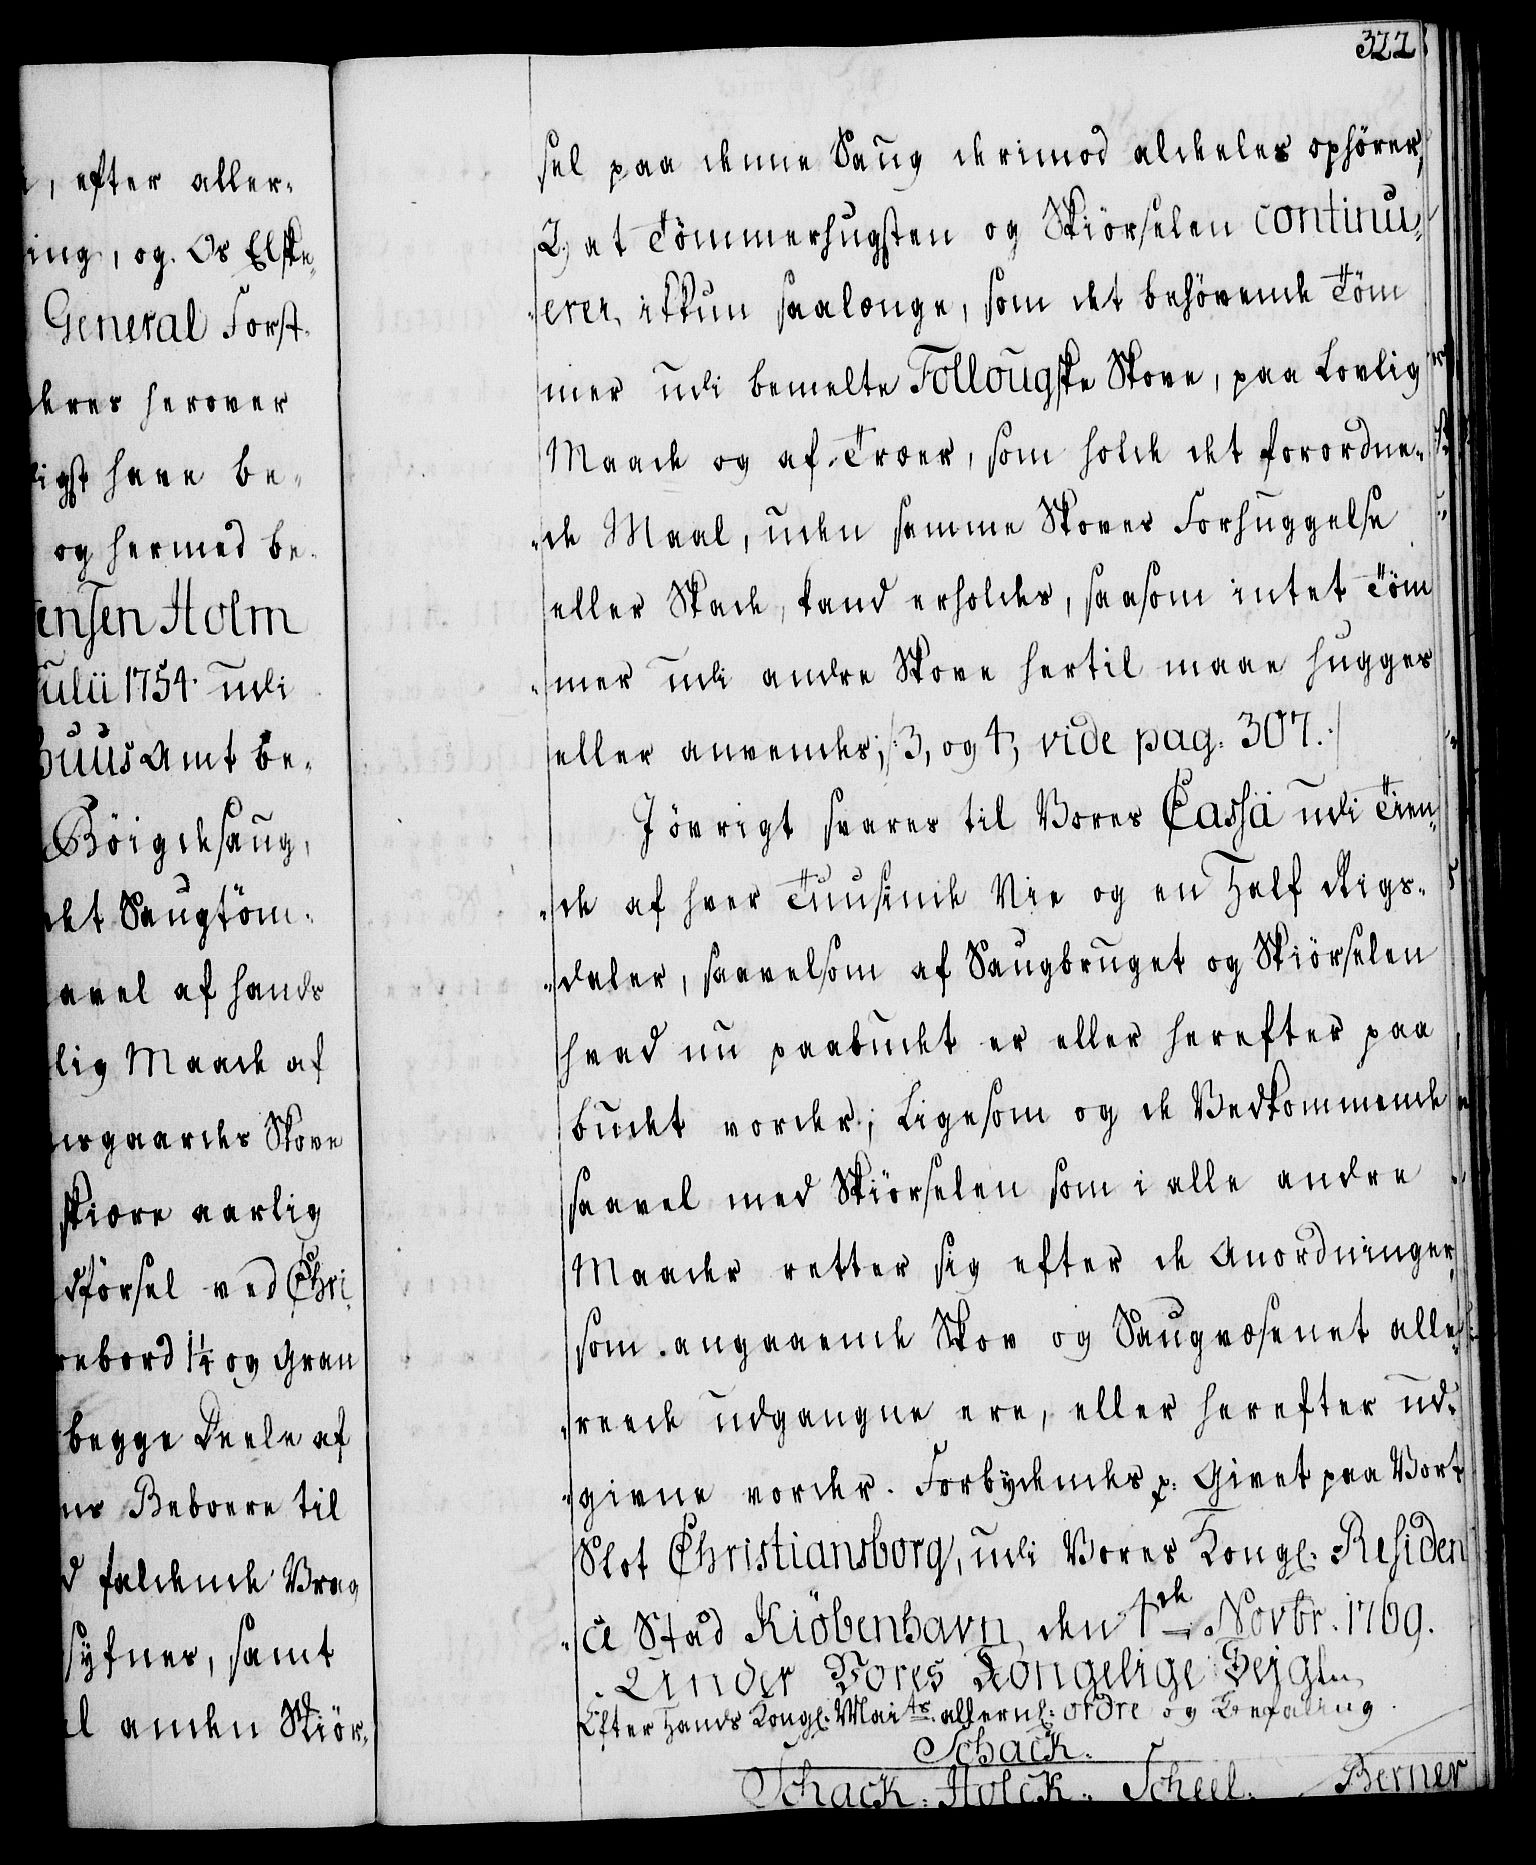 , efter aller-
ing, og Os Elske,
General Forst-
deres herover
ligst have be-
og hermed be-
ensen Holm
ulii 1754. udi
huus Amt be-
Böigdesaug,
det Saugtöm-
aavel af hands
lig Maade af
usgaardes Skove
skiære aarlig
dförsel ved Chri,
rebord 1¼ og Gran
begge Deele af
ns Beboere til
d faldende Vrag
syfner, samt
al anden Skiör-
322
sel paa denne Saug derimod aldeles ophörer,
2, at Tömmerhugsten og Skiörselen continu,
"erer, ikkun saalænge, som det behövende Töm
mer udi bemelte Follougske Skove, paa Lovlig
Maade og af Træer, som holde det forordne-
"de Maal, uden samme Skoves Forhuggelse
eller Skade, kand erholdes, saasom intet Töm
"mer udi andre Skove hertil maae hugges
eller anvendes; /: 3, og 4, vide pag: 307. :/
I övrigt svares til Vores Cassa udi Tien,
"de af hver Tuusinde Nie og en Half Rigs-
"daler, saavelsom af Saugbruget og Skiörselen
hvad nu paabudet er eller herefter paa
budet vorder; Ligesom og de Vedkommende
saavel med Skiörselen som i alle andre
Maader retter sig efter de Anordninger,
som angaaende Skov og Saugvæsenet alle,
"reede udgangne ere, eller herefter ud-
"givne vorder. Forbydendes p: Givet paa Vort
Slot Christiansborg, udi Vores Kongl: Residen
"ce Stad Kiöbenhavn, den 1de Novbr. 1769.
Under Vores Kongelige Zeigln
Efter Hands Kongl: Maits allern: ordre og Befaling.
Schack.
Schack. Holck. Scheel. Berner